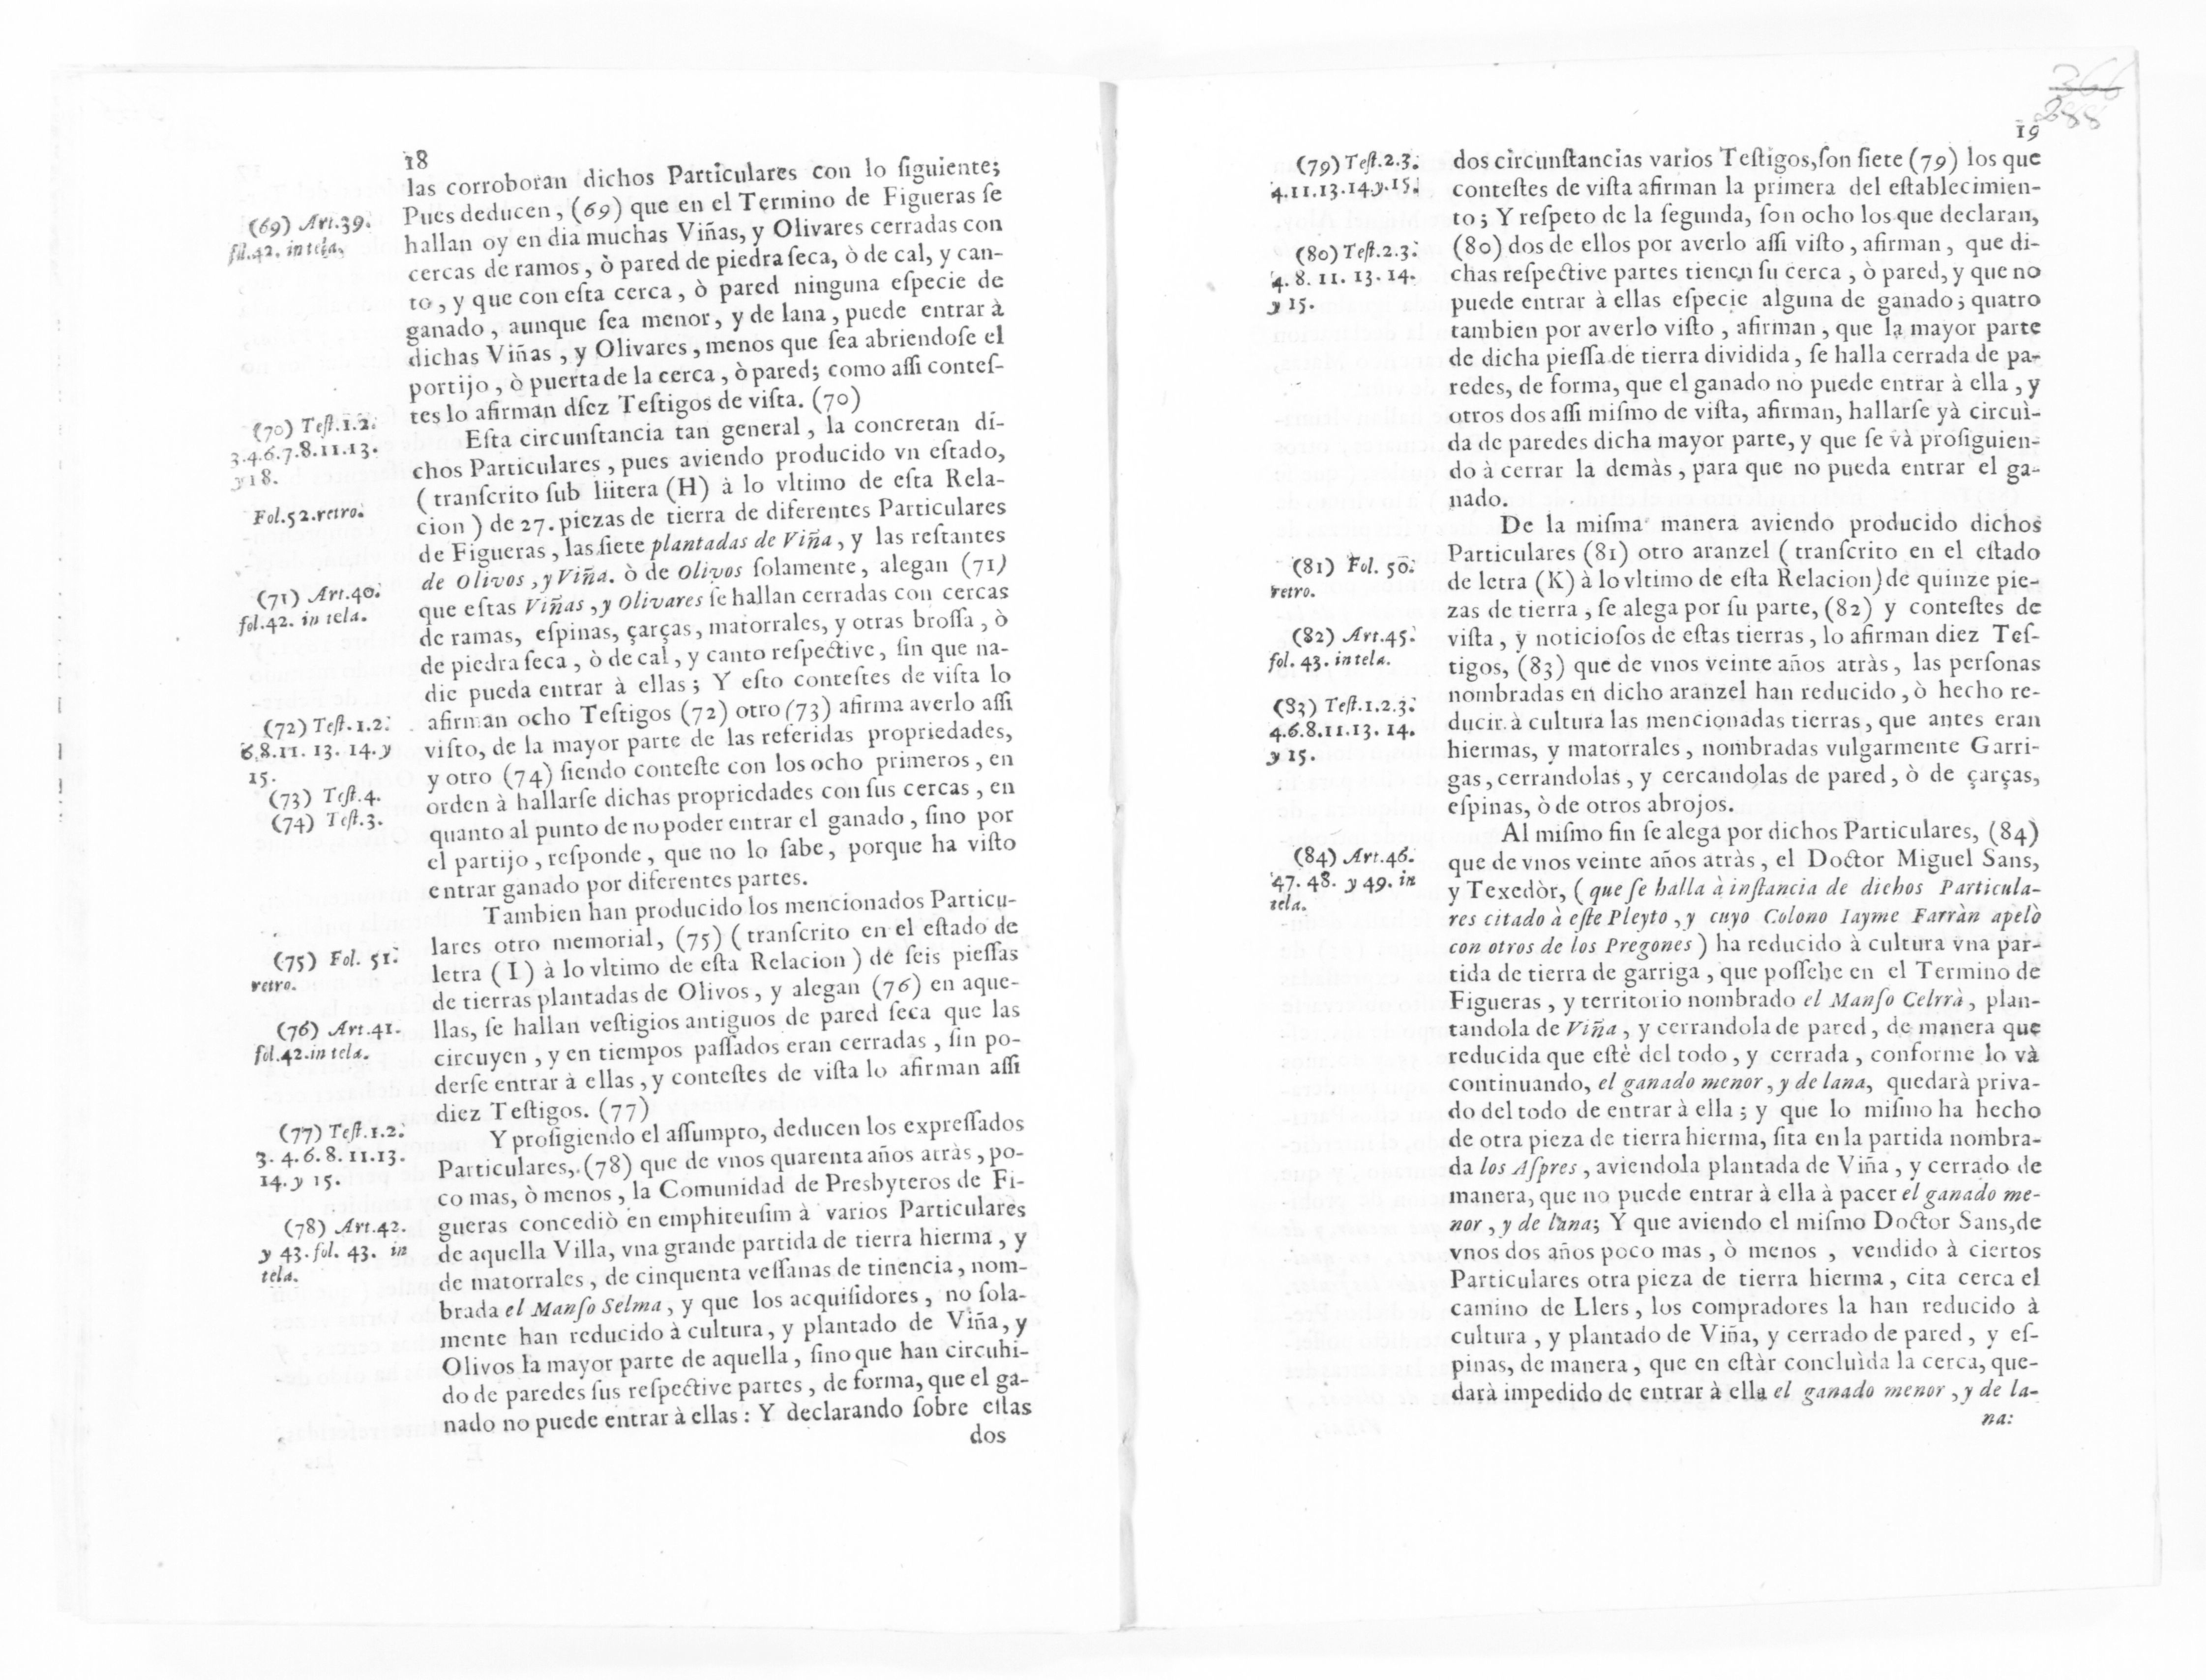 18
las corroboran dichos Particulares con lo ſiguiente;
Pues deducen, (69) que en el Termino de Figueras ſe
hallan oy en dia muchas Viñas, y Olivares cerradas con
cercas de ramos, ò pared de piedra ſeca, ò de cal, y can-
to, y que con eſta cerca, ò pared ninguna eſpecie de
ganado, aunque ſea menor, y de lana, puede entrar à
dichas Viñas, y Olivares, menos que ſea abriendoſe el
portijo, ò puerta de la cerca, ò pared; como aſſi conteſ-
tes lo afirman dſez Teſtigos de viſta. (70)
Eſta circunſtancia tan general, la concretan di-
chos Particulares, pues aviendo producido vn eſtado,
(tranſcrito ſub liitera (H) à lo vltimo de eſta Rela-
cion) de 27. piezas de tierra de diferentes Particulares
de Figueras, las ſiete plantadas de Viña, y las reſtantes
de Olivos, y Viña. ò de Olivos ſolamente, alegan (71)
que eſtas Viñas, y Olivares ſe hallan cerradas con cercas
de ramas, eſpinas, çarças, matorrales, y otras broſſa, ò
de piedra ſeca, ò de cal, y canto reſpective, ſin que na-
die pueda entrar à ellas; Y eſto conteſtes de viſta lo
afirman ocho Teſtigos (72) otro (73) afirma averlo aſſi
viſto, de la mayor parte de las referidas propriedades,
y otro (74) ſiendo conteſte con los ocho primeros, en
orden à hallarſe dichas propriedades con ſus cercas, en
quanto al punto de no poder entrar el ganado, ſino por
el partijo, reſponde, que no lo ſabe, porque ha viſto
entrar ganado por diferentes partes.
Tambien han producido los mencionados Particu-
lares otro memorial, (75) (tranſcrito en el eſtado de
letra (I) à lo vltimo de eſta Relacion) de ſeis pieſſas
de tierras plantadas de Olivos, y alegan (76) en aque-
llas, ſe hallan veſtigios antiguos de pared ſeca que las
circuyen, y en tiempos paſſados eran cerradas, ſin po-
derſe entrar à ellas, y conteſtes de viſta lo afirman aſſi
diez Teſtigos. (77)
Y proſigiendo el aſſumpto, deducen los expreſſados
Particulares, (78) que de vnos quarenta años atràs, po-
co mas, ò menos, la Comunidad de Presbyteros de Fi-
gueras concediò en emphiteuſim à varios Particulares
de aquella Villa, vna grande partida de tierra hierma, y
de matorrales, de cinquenta veſſanas de tinencia, nom-
brada el Manſo Selma, y que los acquiſidores, no ſola-
mente han reducido à cultura, y plantado de Viña, y
Olivos la mayor parte de aquella, ſino que han circuhi-
do de paredes ſus reſpective partes, de forma, que el ga-
nado no puede entrar à ellas: Y declarando ſobre eſtas
dos
(69) Art.39.
fol.42. in tela.
(70) Teſt.1.2.
3.4.6.7.8.11.13.
y 18.
Fol.52.retro.
(71) Art.40.
fol.42. in tela.
(72) Teſt.1.2.
6.8.11. 13. 14. y
15.
(73) Teſt.4.
(74) Teſt.3.
(75) Fol. 51.
retro.
(76) Art.41.
fol.42.in tela.
(77) Teſt.1.2.
3. 4.6. 8. 11.13.
14. y 15.
(78) Art.42.
y 43. fol. 43. in
tela.
366
288
19
dos circunſtancias varios Teſtigos, ſon ſiete (79) los que
conteſtes de viſta afirman la primera del eſtablecimien-
to; Y reſpeto de la ſegunda, ſon ocho los que declaran,
(80) dos de ellos por averlo aſſi viſto, afirman, que di-
chas reſpective partes tienen ſu cerca, ò pared, y que no
puede entrar à ellas eſpecie alguna de ganado; quatro
tambien por averlo viſto, afirman, que la mayor parte
de dicha pieſſa de tierra dividida, ſe halla cerrada de pa-
redes, de forma, que el ganado no puede entrar à ella, y
otros dos aſſi miſmo de viſta, afirman, hallarſe yà circuì-
da de paredes dicha mayor parte, y que ſe và proſiguien-
do à cerrar la demàs, para que no pueda entrar el ga-
nado.
De la miſma manera aviendo producido dichos
Particulares (81) otro aranzel (tranſcrito en el eſtado
de letra (K) à lo vltimo de eſta Relacion) de quinze pie-
zas de tierra, ſe alega por ſu parte, (82) y conteſtes de
viſta, y noticioſos de eſtas tierras, lo afirman diez Teſ-
tigos, (83) que de vnos veinte años atràs, las perſonas
nombradas en dicho aranzel han reducido, ò hecho re-
ducir à cultura las mencionadas tierras, que antes eran
hiermas, y matorrales, nombradas vulgarmente Garri-
gas, cerrandolas, y cercandolas de pared, ò de çarças,
eſpinas, ò de otros abrojos.
Al miſmo fin ſe alega por dichos Particulares, (84)
que de vnos veinte años atràs, el Doctor Miguel Sans,
y Texedòr, (que ſe halla à inſtancia de dichos Particula-
res citado à eſte Pleyto, y cuyo Colono Iayme Farràn apelò
con otros de los Pregones) ha reducido à cultura vna par-
tida de tierra de garriga, que poſſehe en el Termino de
Figueras, y territorio nombrado el Manſo Celrrà, plan-
tandola de Viña, y cerrandola de pared, de manera que
reducida que eſtè del todo, y cerrada, conforme lo và
continuando, el ganado menor, y de lana, quedarà priva-
do del todo de entrar à ella; y que lo miſmo ha hecho
de otra pieza de tierra hierma, ſita en la partida nombra-
da los Aſpres, aviendola plantada de Viña, y cerrado de
manera, que no puede entrar à ella à pacer el ganado me-
nor, y de lana; Y que aviendo el miſmo Doctor Sans, de
vnos dos años poco mas, ò menos, vendido à ciertos
Particulares otra pieza de tierra hierma, cita cerca el
camino de Llers, los compradores la han reducido à
cultura, y plantado de Viña, y cerrado de pared, y eſ-
pinas, de manera, que en eſtàr concluìda la cerca, que-
darà impedido de entrar à ella el ganado menor, y de la-
na:
(79) Teſt.2.3.
4.11.13.14.y.15.
(80) Teſt.2.3.
4. 8. 11. 13. 14.
y 15.
(81) Fol. 50.
retro.
(82) Art.45.
fol. 43. in tela.
(83) Teſt.1.2.3.
4.6.8.11.13. 14.
y 15.
(84) Art.46.
47. 48. y 49. in
tela.